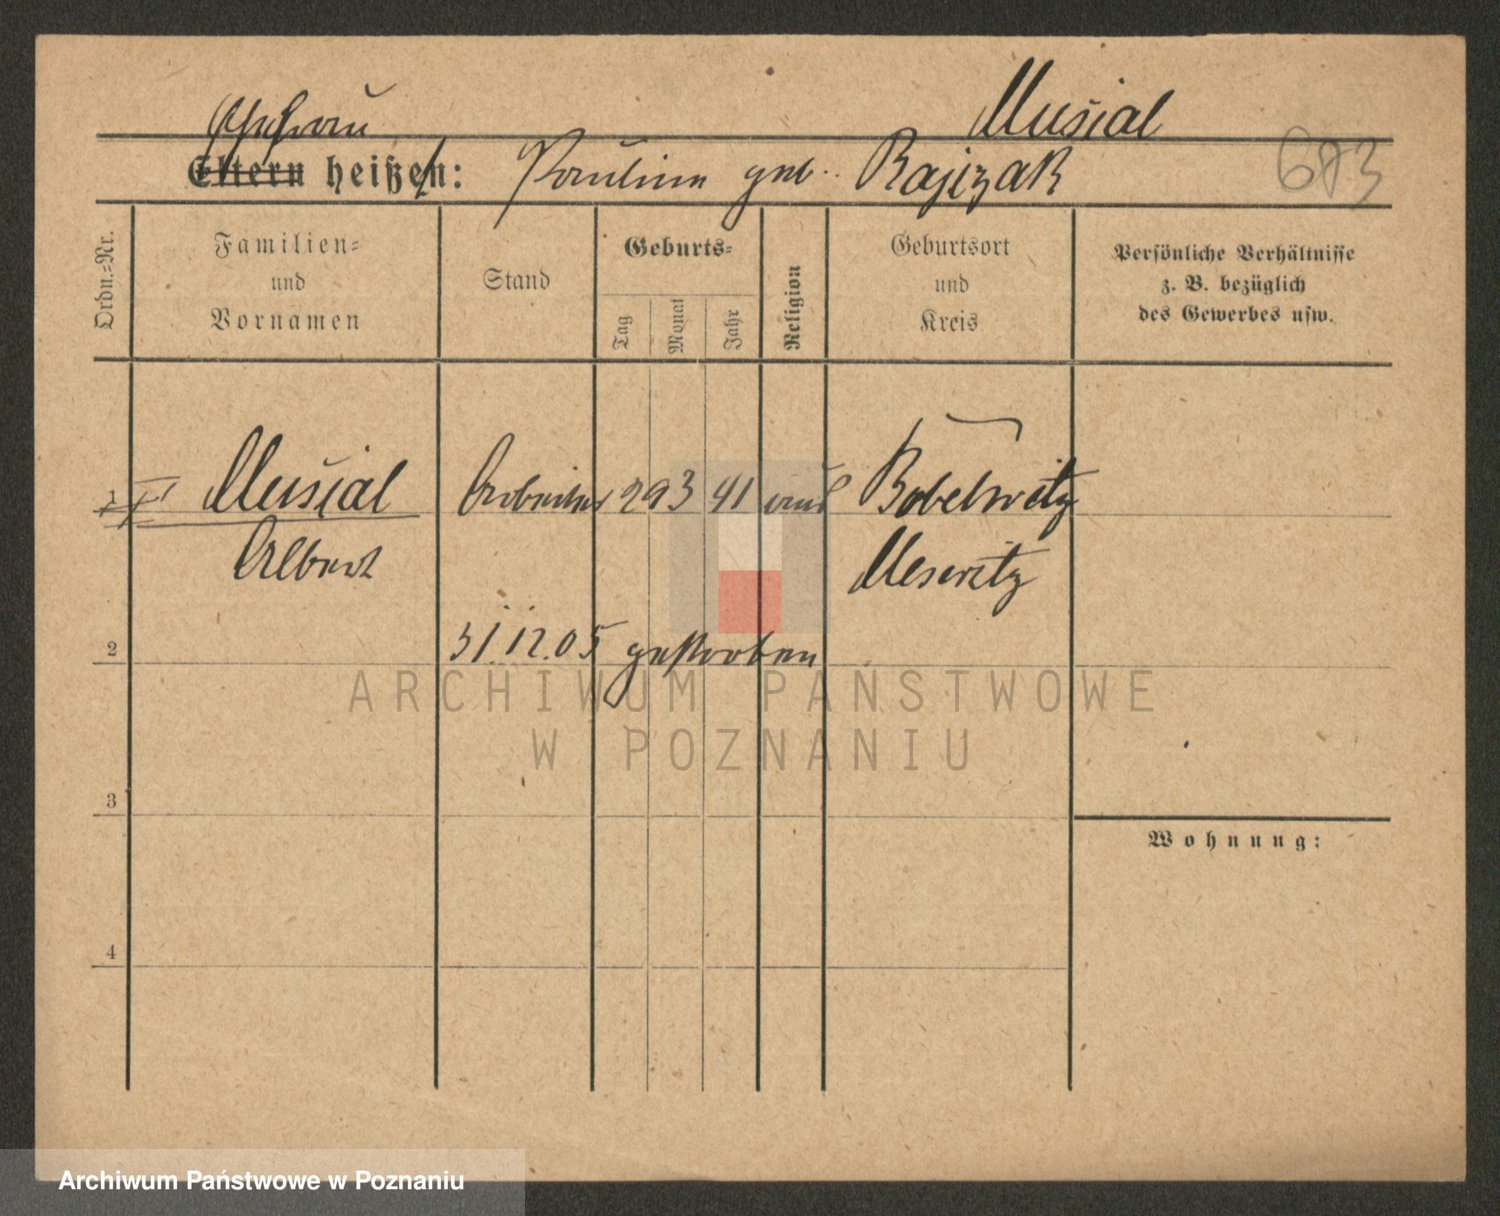 Musial
Ehefrau
Eltern heißen: Pauline geb. Rajczak 683
Ordn.=Nr.
Familien=
und
Vornamen
Stand
Geburts=
Tag
Monat
Jahr
Religion
Geburtsort
und
Kreis
Persönliche Verhältnisse
z. B. bezüglich
des Gewerbes usw.
Musial Arbeiter 29 3 41 Bobelwitz
Albert Meseritz
2 31.12.05 gestorben
ARCHIWUM PAŃSTWOWE
W POZNANIU
3
Wohnung:
4
Archiwum Państwowe w Poznaniu